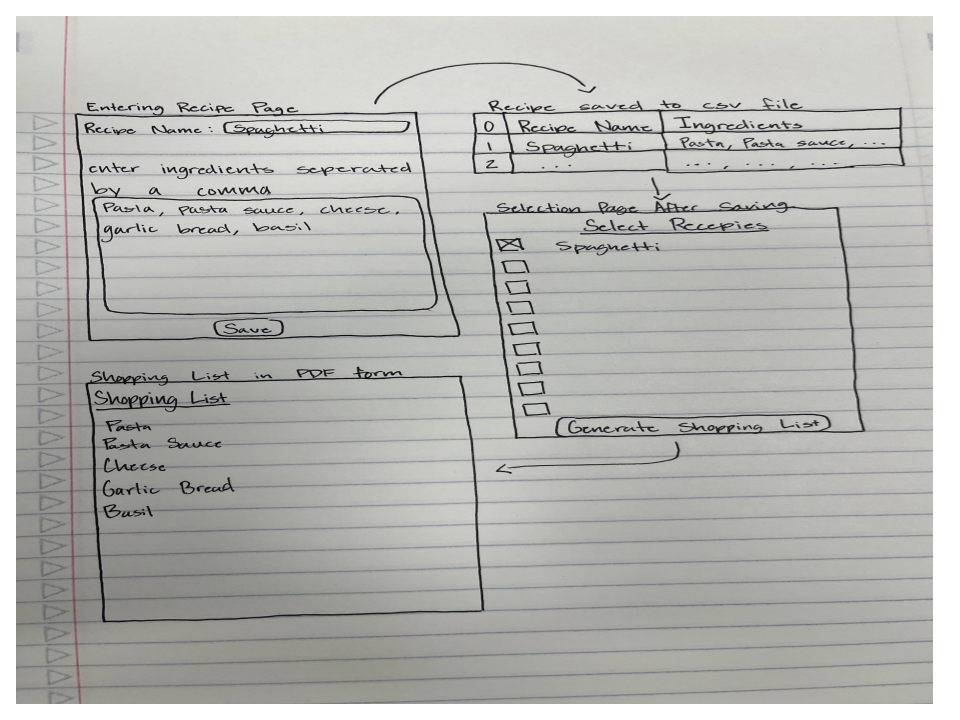 Entering Recipe Page
Recipe Name: Spaghetti
enter ingredients seperated
by a comma
Pasta, pasta sauce, cheese,
garlic bread, basil
Save
Recipe saved to csv file
0 Recipe Name Ingredients
1 Spaghetti Pasta, Pasta sauce, ...
2 ... ..., ..., ...
Selection Page After Saving
Select Recepies
Spaghetti
Generate Shopping List
Shopping List in PDF form
Shopping List
Pasta
Pasta Sauce
Cheese
Garlic Bread
Basil